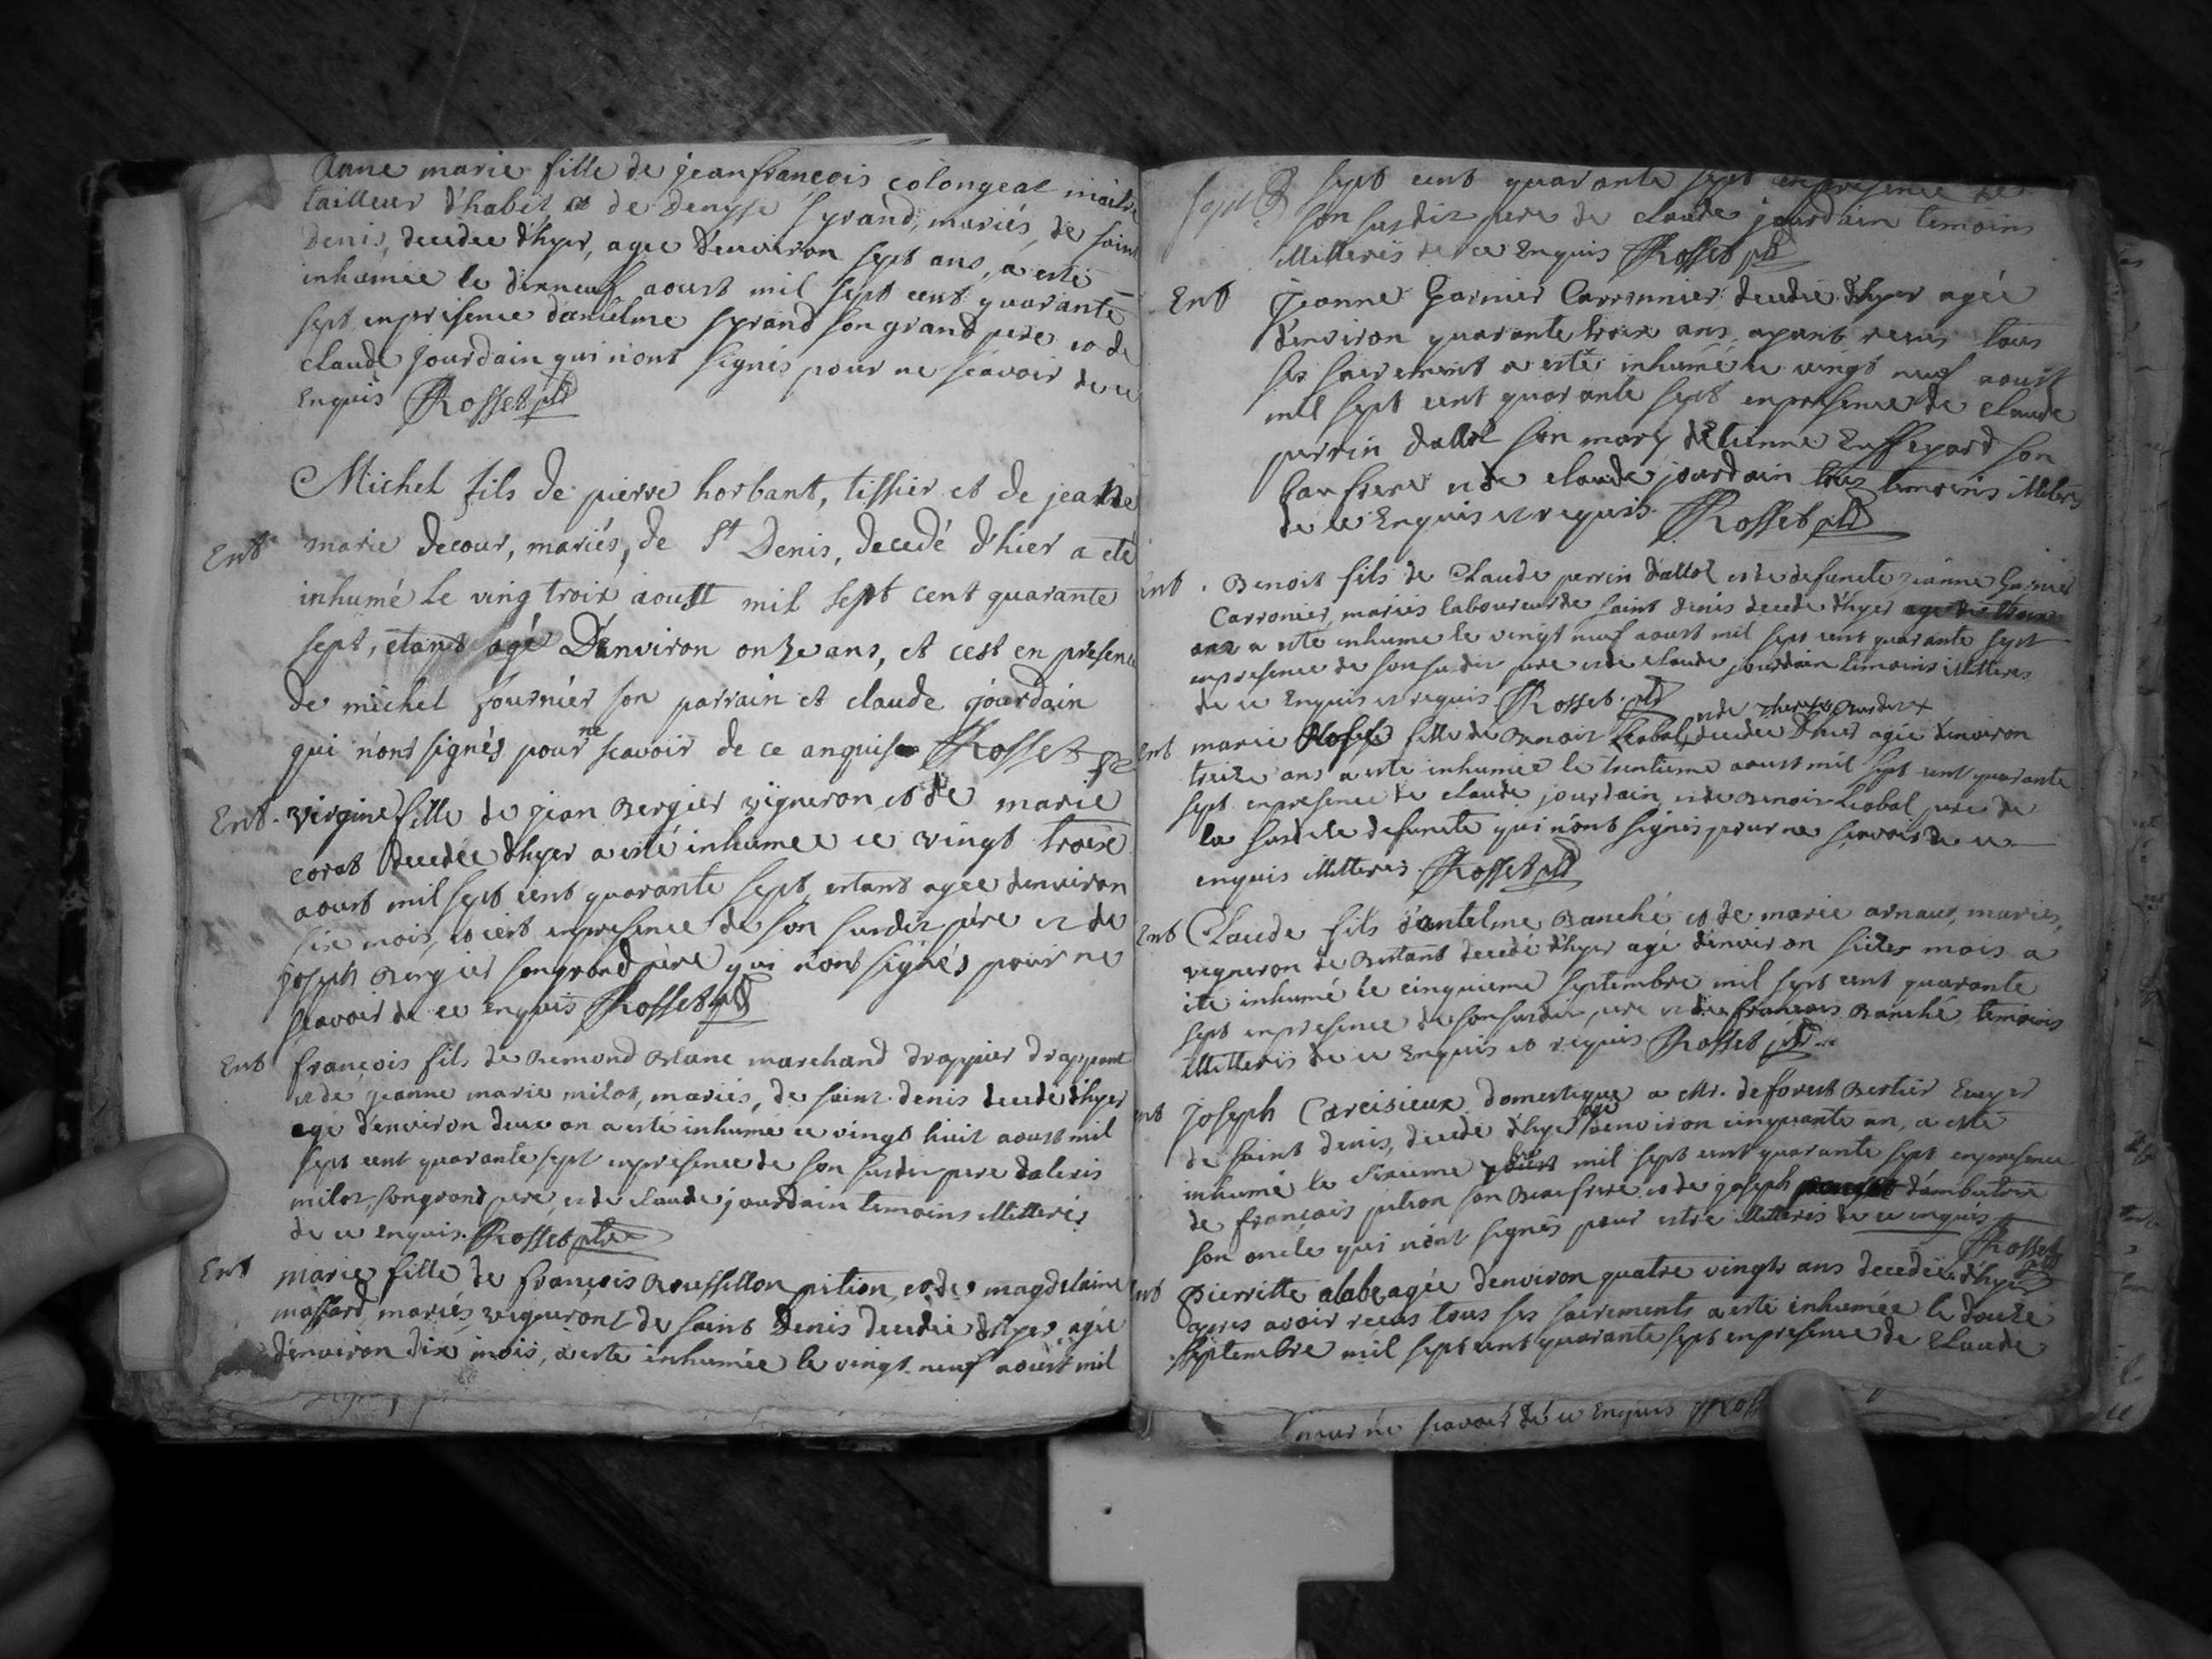 Anne marie fille de jeanfrancois colongeat maitre
tailleur d'habit et de denyse syrand, mariés, de saint
Denis, decedee d'hyer, agee d'environ sept ans, a esté
inhumée le dixneuf aoust mil sept cent quarante
sept enprésence danthelme syrand son grand pere et de
claude Jourdain qui n'ont signés pour ne scavoir de ce
Enquis Rosset
Michel fils de pierre horbant, tissier et de jeanne
Ent marie decour, mariés, de St Denis, decedé d'hier a eté
inhumé le ving troix aoust mil sept cent quarante
sept, etant agé D'environ onze ans, et cest en presence
de michel fournier son parrain et claude jourdain
qui n'ont signés pour ne scavoir de ce anquis Rosset
Ent. virgine fille de jean Bergier vigneron et de marie
corat decedée d'hyer a esté inhumee ce vingt troix
aoust mil sept cent quarante sept, estant agee denviron
six mois, et cest enpresence de son susdit père et de
joseph Bergier songrand père qui n'ont signés pour ne
scavoir de ce enquis Rosset
Ent françois fils de Remond Blanc marchand drappier drappant
et de jeanne marie milot, mariés, de saint denis decedé d'hyer
agé d'environ deux an a esté inhumé ce vingt huit aoust mil
sept cent quarante sept enpresence de son susdit pere dalexis
milot, songrand pere, et de claude jourdain temoins illitteres
de ce enquis. Rosset
Ent marie fille de françois Roussillon pition, et de magdelaine
massard, mariés, vigneront de saint Denis decedée d'hyer, agée
d'environ dix mois, a esté inhumée le vingt neuf aoust mil
sept cent quarante sept enpresence de
son susdit pere de claude jourdain temoins
illitterés de ce Enquis Rosset
Ent Jeanne Garnier Carronnier decedée d'hyer agée
d'environ quarante troix ans, ayant reçus tous
ses sacrement a esté inhumé ce vingt neuf aoust
mil sept cent quarante sept enpresence de claude
perrin dallot son mary d'Etienne son
beaufrere et de claude jourdain temoins illiteres
de ce Enquis et requis. Rosset
Ent. Benoit fils de Claude perrin dallot et de defuncte jeanne Garnier
Carronier, mariés laboureur de saint denis decedé d'hyer
ans a esté inhumé le vingt neuf aoust mil sept cent quarante sept
enpresence de son susdit pere et de claude jourdain temoins illitteres
de ce Enquis et requis. Rosset.
et de
Ent marie fille de Benoit Leobal, decedee d'hier agée d'environ
treize ans a esté inhumee le trentieme aoust mil sept cent quarante
sept enpresence de claude jourdain et de Benoit Leobal pere de
la susdite defuncte qui n'ont signés pour ne scavoir de ce
enquis illitteres. Rosset
Ent Claude fils d'antelme Banché et de marie arnaud, mariés,
vigneron de decedé d'hyer agé d'environ seize mois a
été inhumé le cinquieme septembre mil sept cent quarante
sept enpresence de son susdit pere et de françois Banché temoins
illitterés de ce Enquis et requis Rosset
Ent Joseph Carcisieux domestique a Mr. deforest Bertier Ecuyer
de saint denis, decedé d'hyer agé d'environ cinquante an, a esté
inhumé le sixieme mil sept cent quarante sept enpresence
de françois son Beaufrere et de joseph
son oncle qui n'ont signés pour estre illitteres de ce enquis
Rosset
Ent pierrette alabe agée d'environ quatre vingts ans decedée d'hyer
apres avoir recus tous ses sacrements a esté inhumée le douze
septembre mil sept cent quarante sept enpresence de Claude
pour ne scavoir de ce Enquis